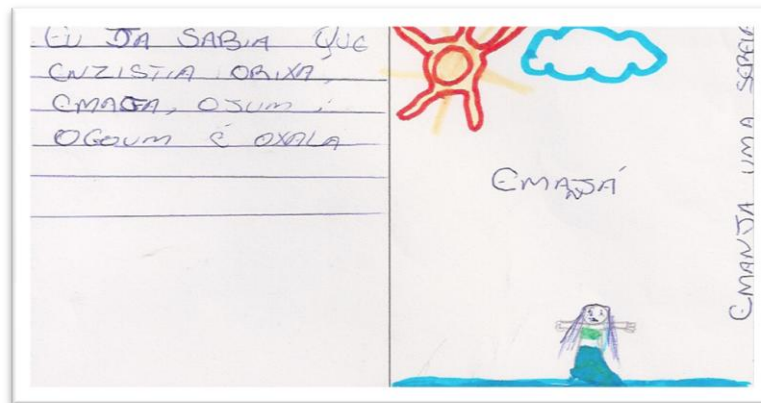 EU JA SABIA QUE
ENZISTIA ORIXA,
EMAJA, OJUM,
OGOUM E OXALA
EMANJÁ
EMANJA UMA SEREIA